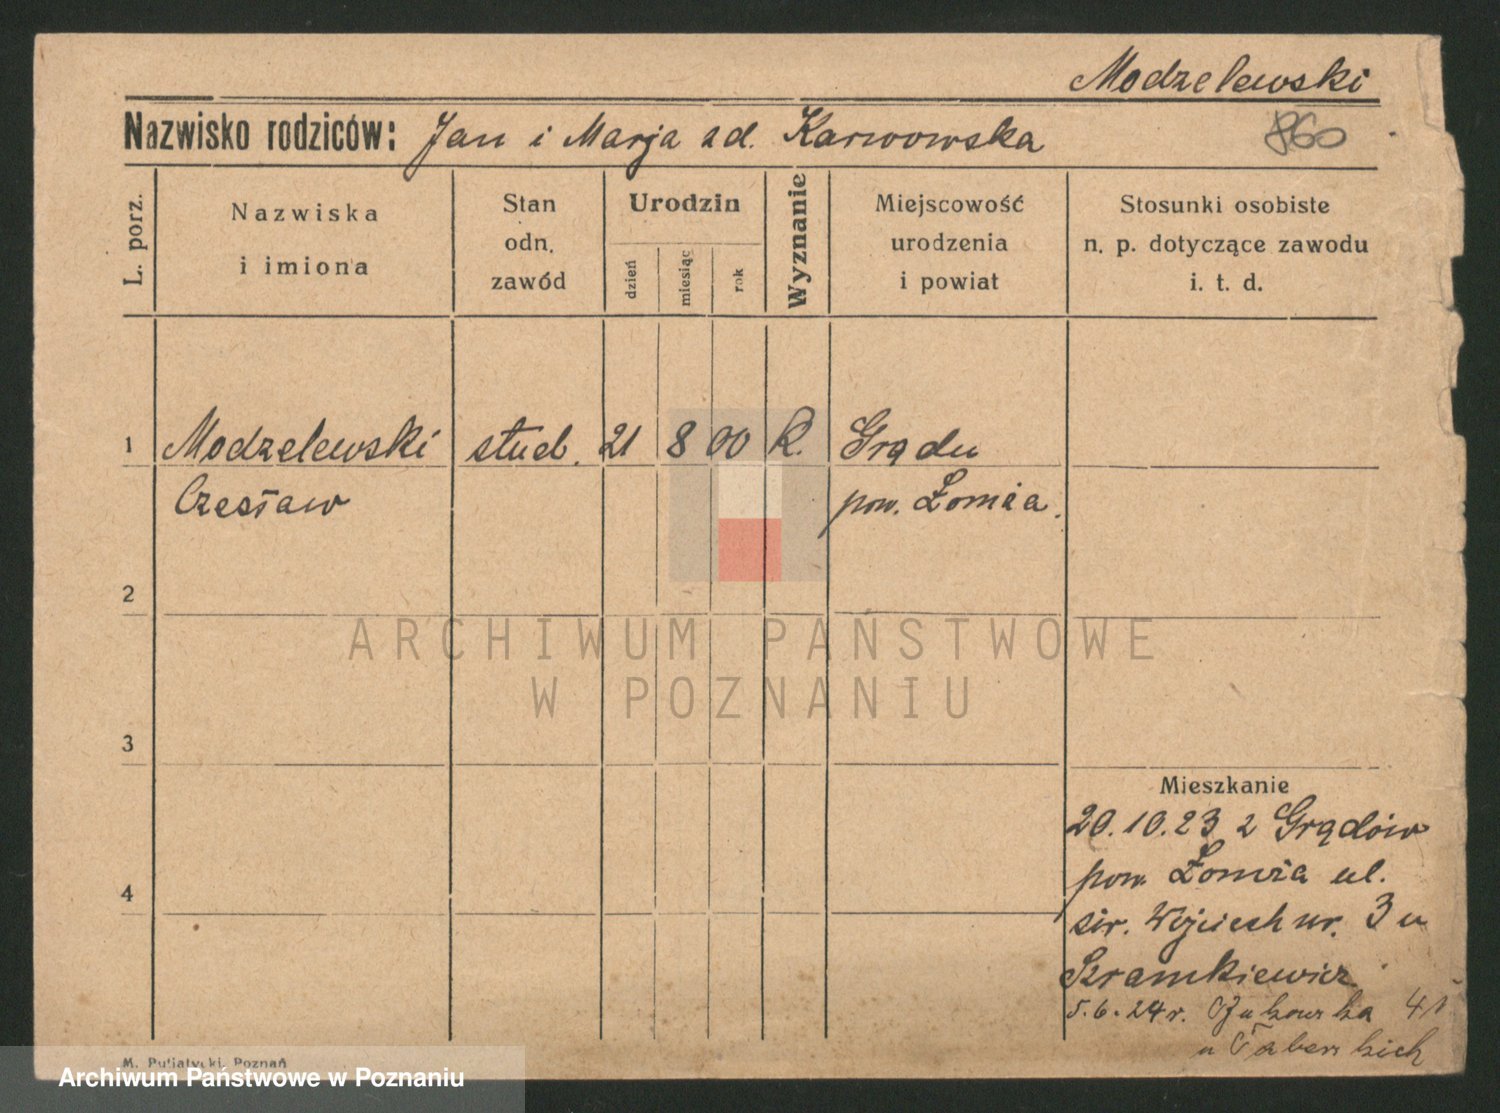 Modzelewski
Nazwisko rodziców: Jan i Marja zd. Karwowska
860
L. porz.
Nazwiska
i imiona
Stan
odn.
zawód
Urodzin
dzień
miesiąc
rok
Wyznanie
Miejscowość
urodzenia
i powiat
Stosunki osobiste
n. p. dotyczące zawodu
i. t. d.
1 Modzelewski stud. 21 8 00 K. Grądu
Czesław pow. Łomża.
2
ARCHIWUM PAŃSTWOWE
W POZNANIU
3
Mieszkanie
20.10.23 z Grądów
4
pow. Łomża ul.
św. Wojciech nr. 3 u
Szramkiewicz
5.6.24r. 41
u
M. Putiatycki, Poznań
Archiwum Państwowe w Poznaniu